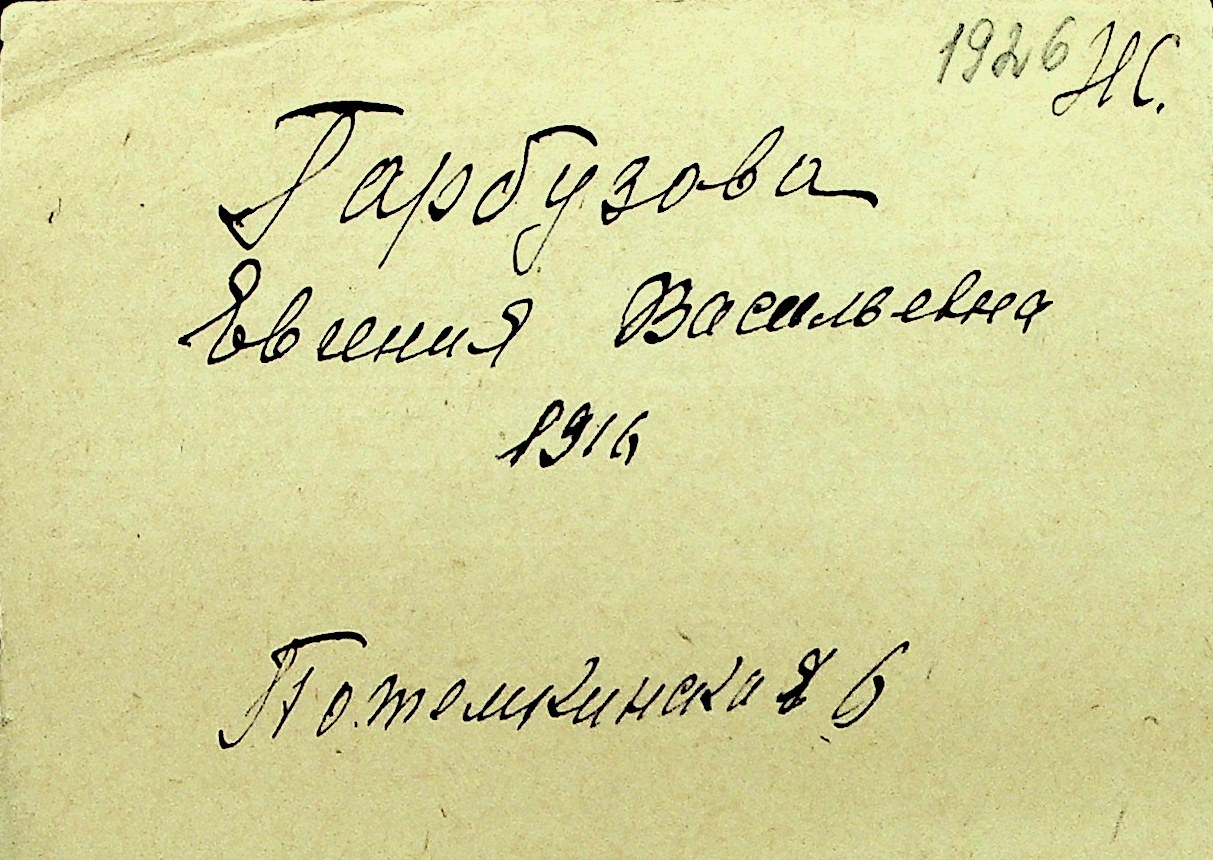 1926 НС.
Гарбузова
Евгения Васильевна
1916
Потемкинская 6